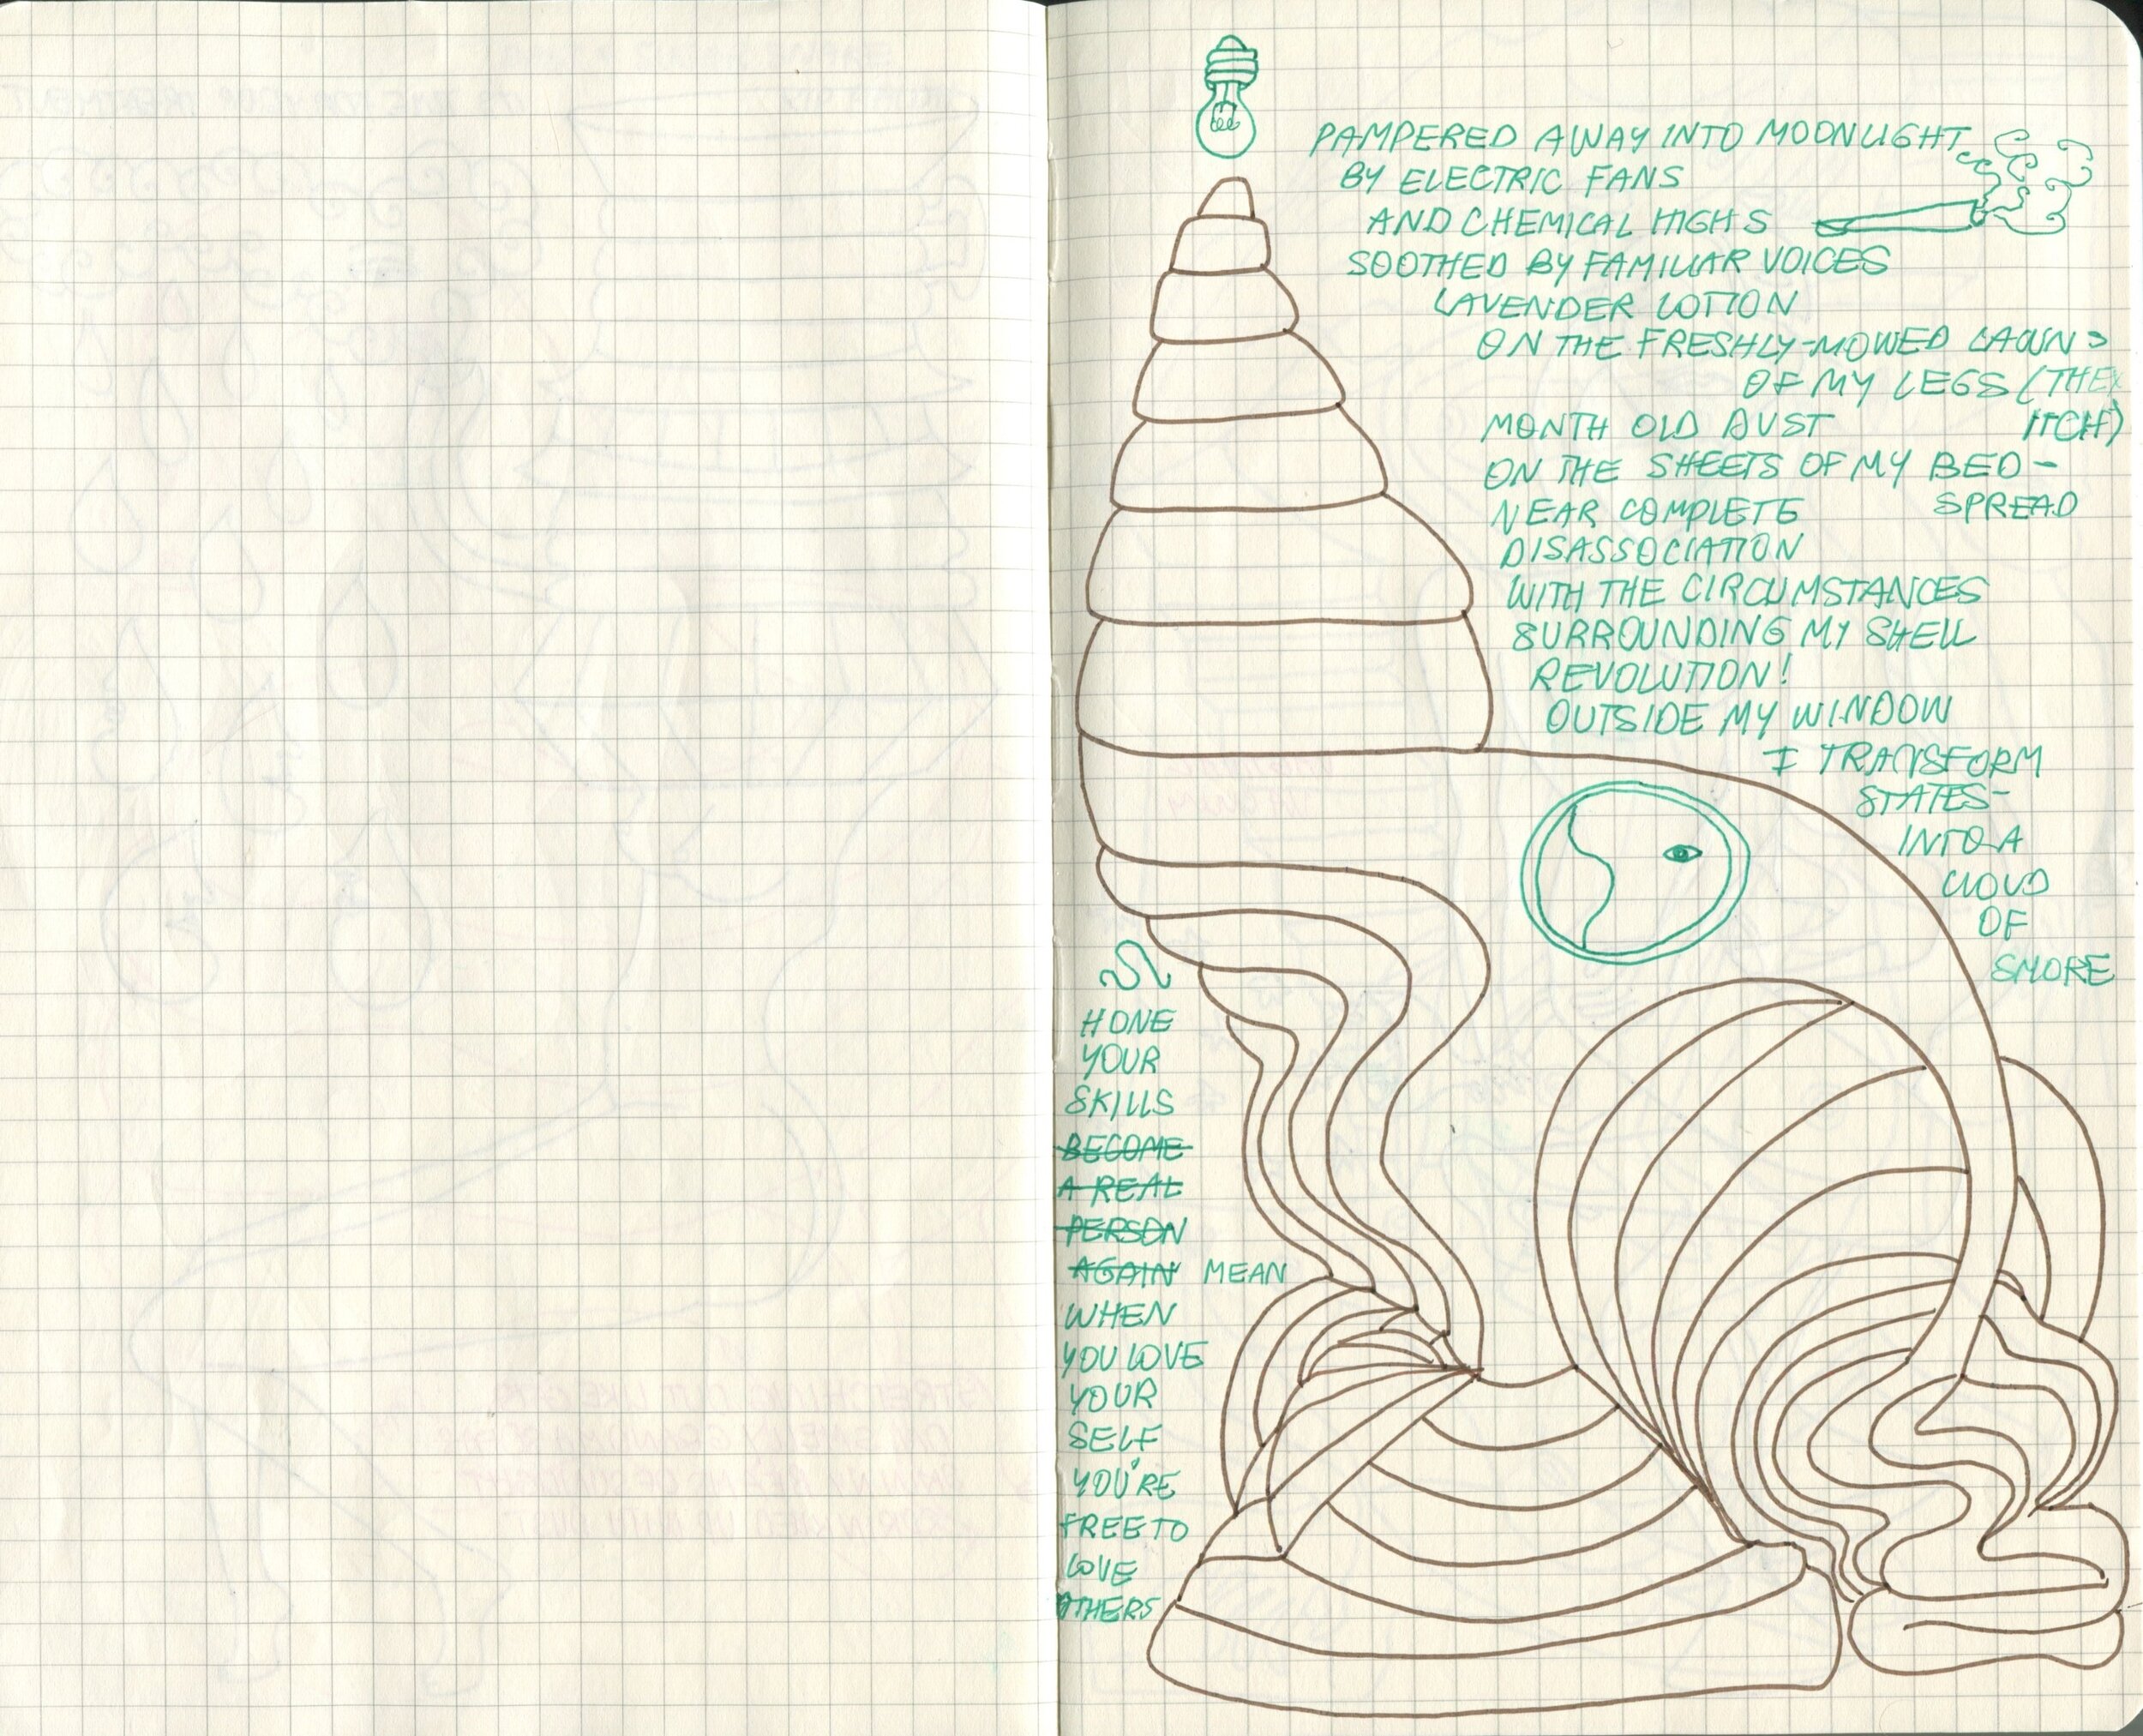 PAMPERED AWAY INTO MOONLIGHT
BY ELECTRIC FANS
AND CHEMICAL HIGHS
SOOTHED BY FAMILIAR VOICES
LAVENDER LOTION
ON THE FRESHLY-MOWED LAWNS
OF MY LEGS (THEY
ITCH)
MONTH OLD DUST
ON THE SHEETS OF MY BED-
SPREAD
NEAR COMPLETE
DISASSOCIATION
WITH THE CIRCUMSTANCES
SURROUNDING MY SHELL
REVOLUTION!
OUTSIDE MY WINDOW
I TRANSFORM
STATES-
INTO A
CLOUD
OF
SMOKE
HONE
YOUR
SKILLS
BECOME
A REAL
PERSON
AGAIN MEAN
WHEN
YOU LOVE
YOUR
SELF
YOU'RE
FREE TO
LOVE
OTHERS